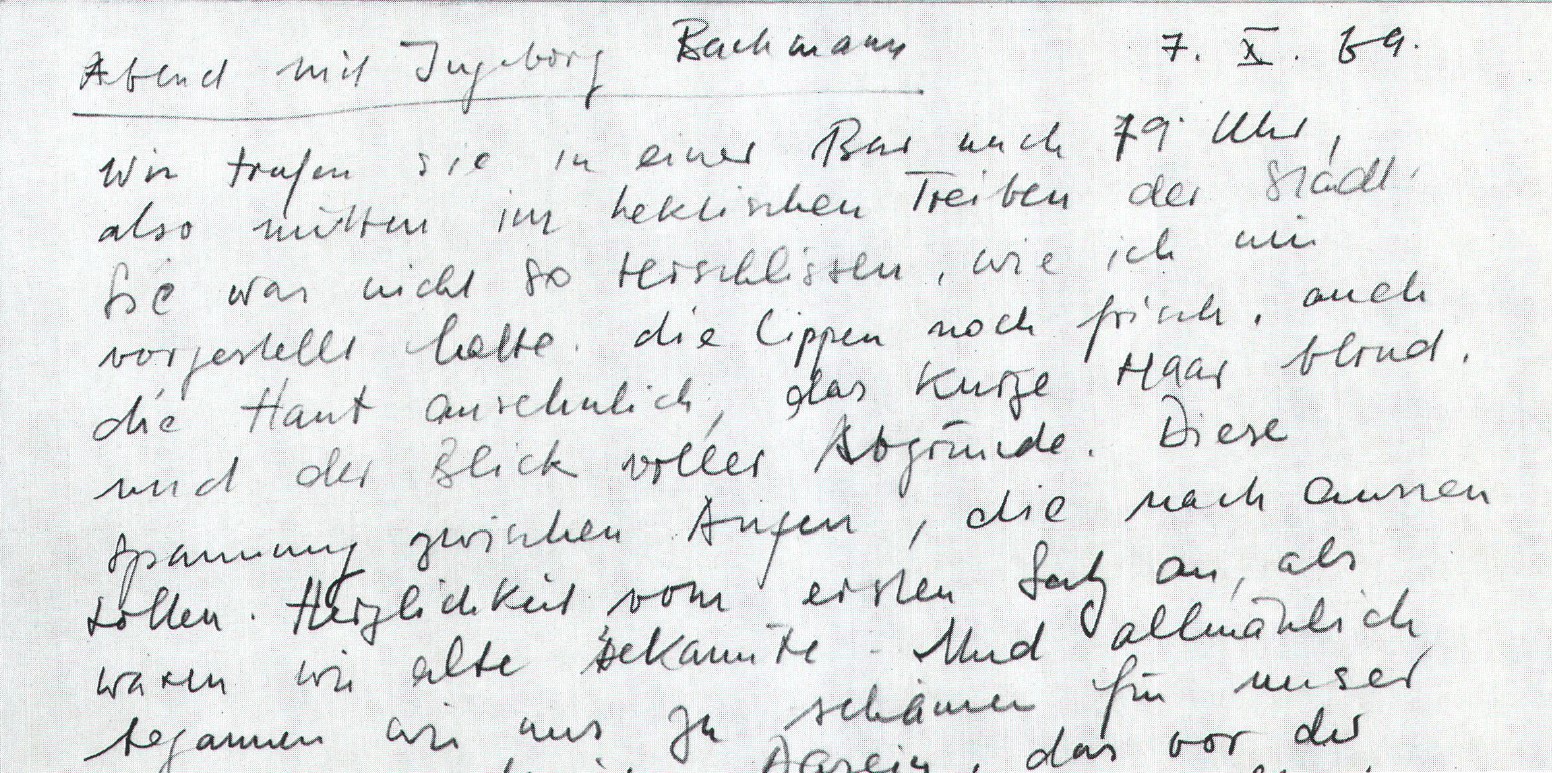 Abend mit Ingeborg Bachmann 7. X. 69.
Wir trafen sie in einer Bar nach 19 Uhr,
also mitten im hektischen Treiben der Stadt.
Sie war nicht so zerschlissen, wie ich mir
vorgestellt hatte. die Lippen noch frisch, auch
die Haut ansehnlich, das kurze Haar blond.
und der Blick voller Abgründe. Diese
Spannung zwischen Augen, die nach aussen
sollen. Herzlichkeit vom ersten Satz an, als
waren wir alte Bekannte. Und allmählich
begannen wir uns zu schämen für unser
Dasein, das vor der